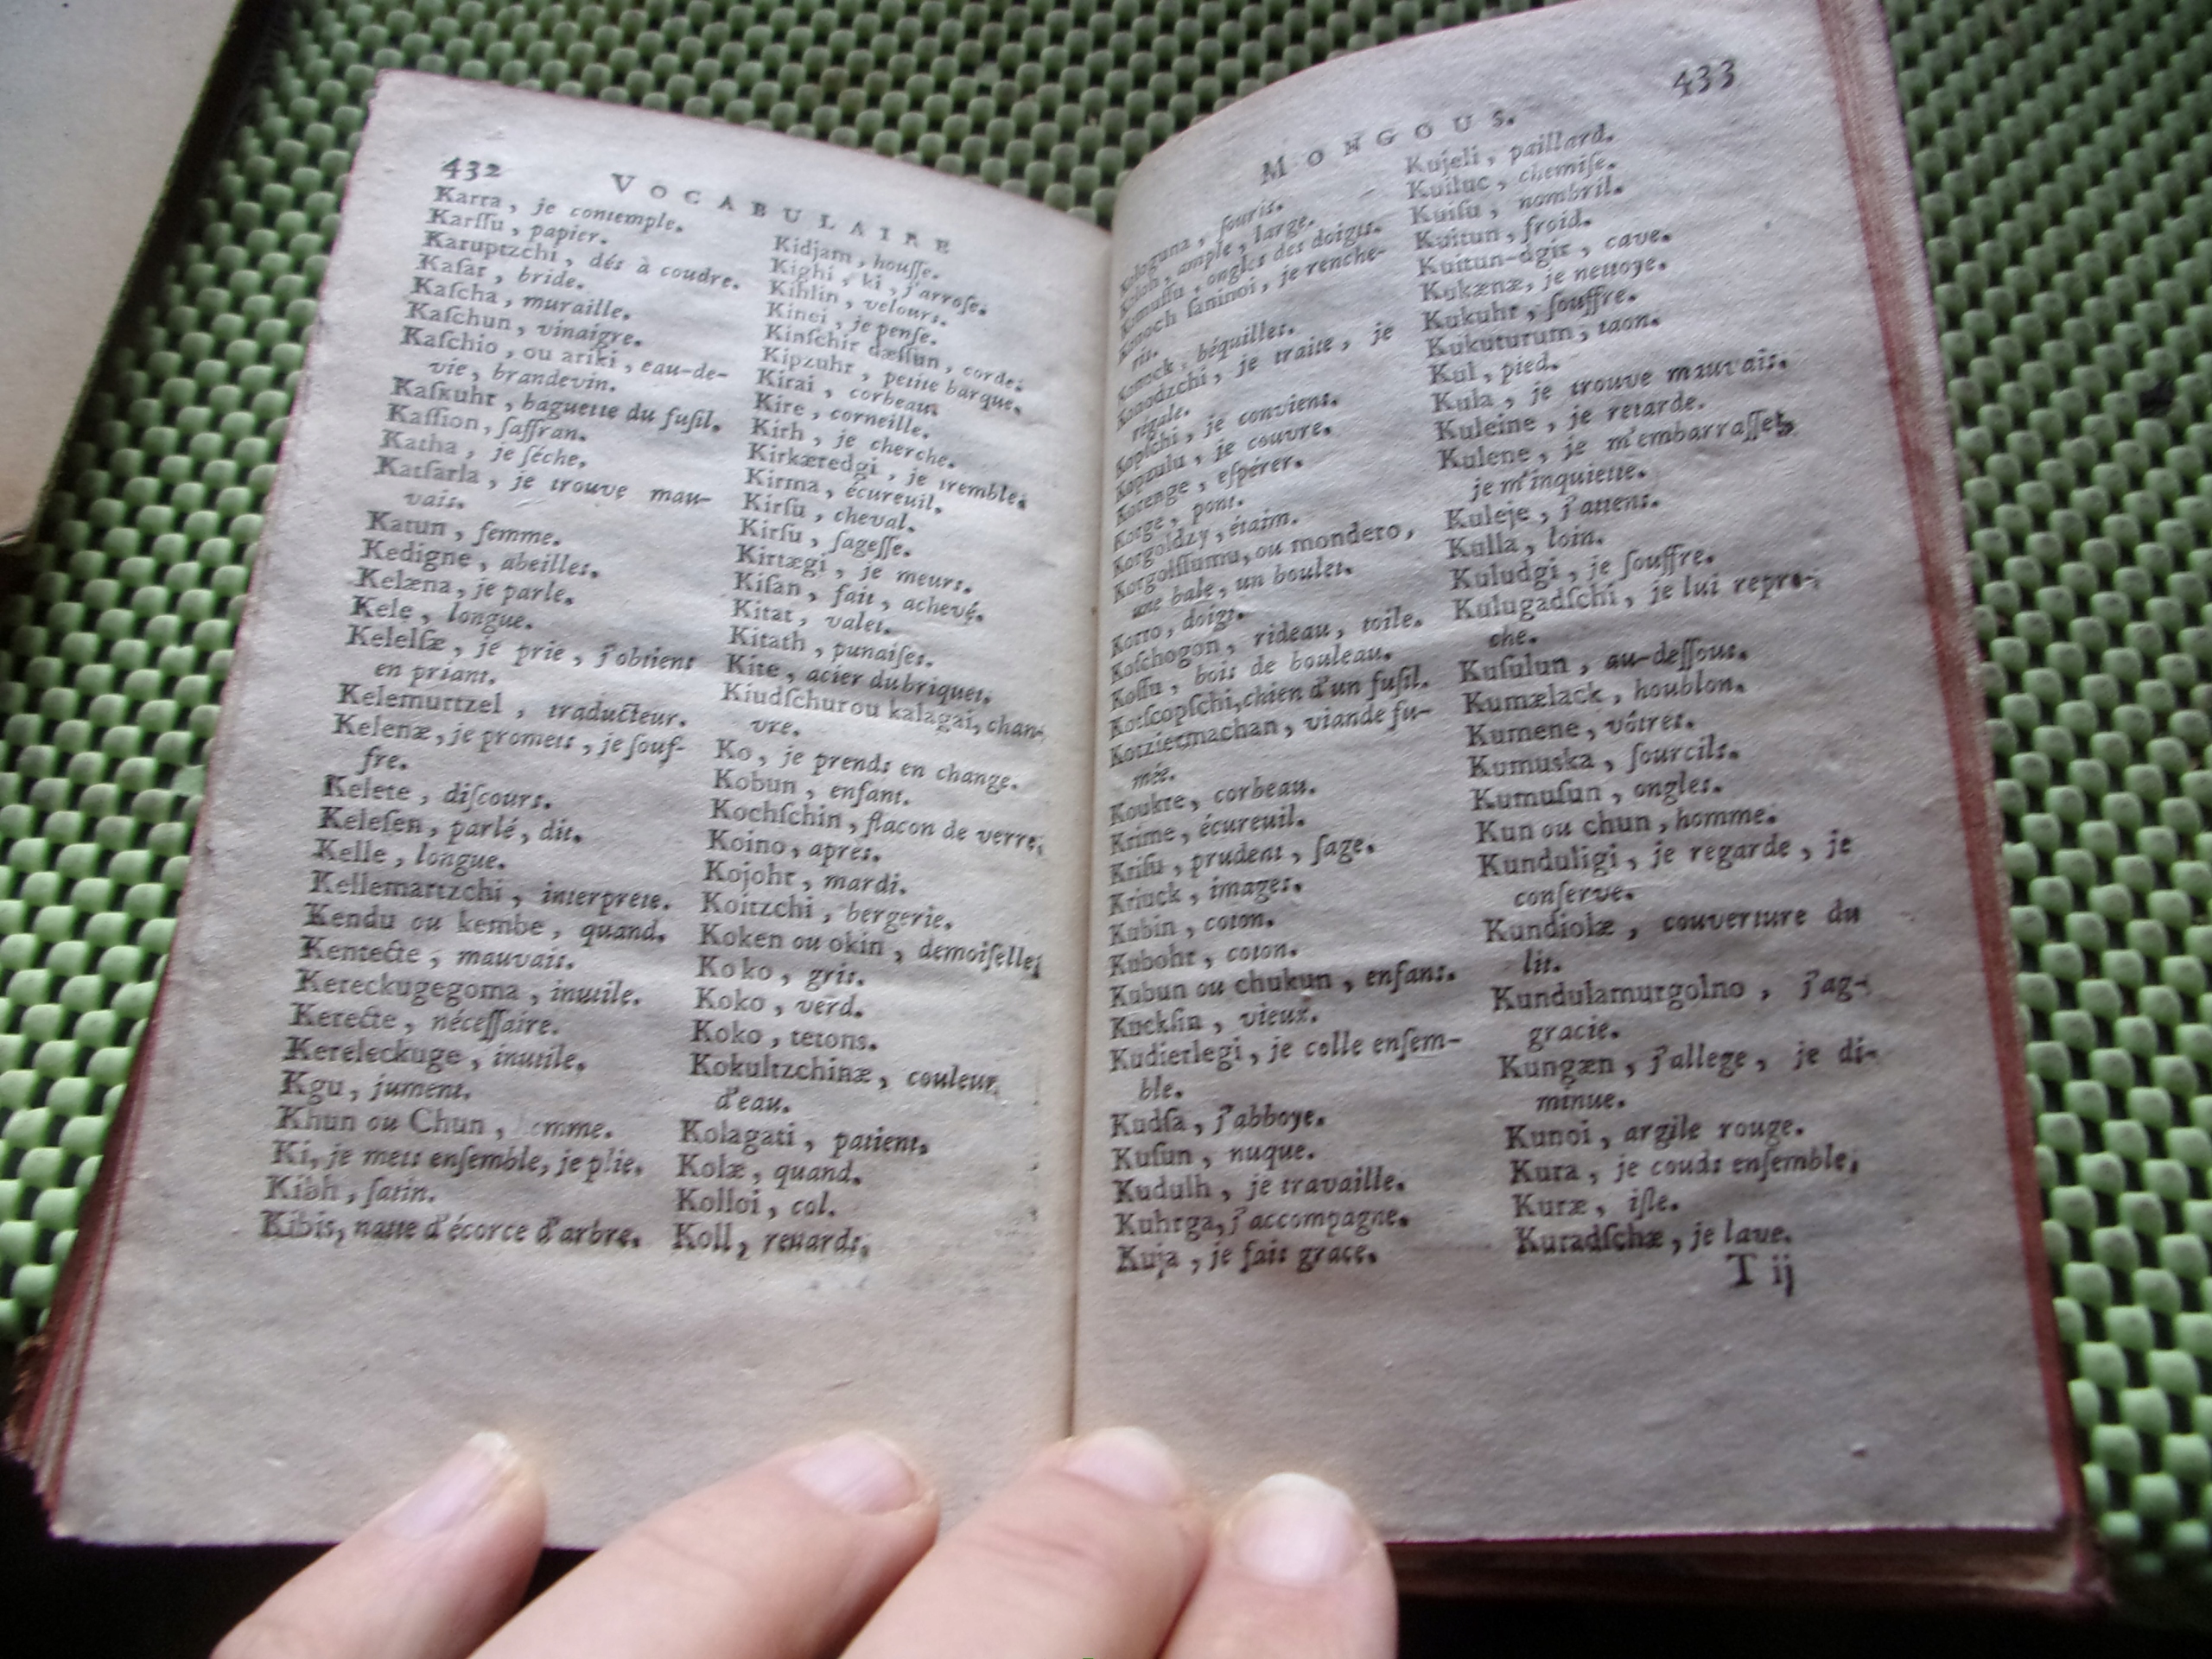 432 VOCABULAIRE
Karra, je contemple.
Karſſu, papier.
Karuptzchi, dés à coudre.
Kaſar, bride.
Kaſcha, muraille.
Kaſchun, vinaigre.
Kaſchio, ou ariki, eau-de-
vie, brandevin.
Kaſkuhr, baguette du fuſil.
Kaſſion, ſaffran.
Katha, je ſéche.
Katſarla, je trouve mau-
vais.
Katun, femme.
Kedigne, abeilles.
Kelæna, je parle.
Kele, longue.
Kelelſæ, je prie, j'obtiens
en priant.
Kelemurtzel, traducteur.
Kelenæ, je promets, je ſouf-
fre.
Kelete, diſcours.
Keleſen, parlé, dit.
Kelle, longue.
Kellemartzchi, interprete.
Kendu ou kembe, quand.
Kentecte, mauvais.
Kereckugegoma, inutile.
Kerecte, néceſſaire.
Kereleckuge, inutile.
Kgu, jument.
Khun ou Chun, emme.
Ki, je mets enſemble, je plie.
Kibh, ſatin.
Kibis, natte d'écorce d'arbre.
Kidjam, houſſe.
Kighi, ki, j'arroſe.
Kihlin, velours.
Kinei, je penſe.
Kinſchir dæſſun, corde.
Kipzuhr, petite barque.
Kirai, corbeau.
Kire, corneille.
Kirh, je cherche.
Kirkæredgi, je tremble.
Kirma, écureuil.
Kirſu, cheval.
Kirſu, ſageſſe.
Kirtægi, je meurs.
Kiſan, fait, achevé.
Kitat, valet.
Kitath, punaiſes.
Kite, acier du briquet.
Kiudſchur ou kalagai, chan-
vre.
Ko, je prends en change.
Kobun, enfant.
Kochſchin, flacon de verre.
Koino, après.
Kojohr, mardi.
Koitzchi, bergerie.
Koken ou okin, demoiſelle.
Koko, gris.
Koko, verd.
Koko, tetons.
Kokultzchinæ, couleur
d'eau.
Kolagati, patient.
Kolæ, quand.
Kolloi, col.
Koll, renards.
MONGOUS. 433
ſouris.
ample, large.
ongles des doigts.
ſaninoi, je renche-
ris.
béquilles.
je traite, je
régale.
Kopſchi, je conviens.
Kopzulu, je couvre.
Korenge, eſpérer.
Korge, pont.
Korgoldzy, étaim.
Korgolſſumu, ou mondero,
une bale, un boulet.
Korro, doigt.
Koſchogon, rideau, toile.
Koſſu, bois de bouleau.
Kotſcopſchi, chien d'un fuſil.
Kotziermachan, viande fu-
mée.
Koukre, corbeau.
Krime, écureuil.
Kriſu, prudent, ſage.
Kriuck, images.
Kubin, coton.
Kubohr, coton.
Kubun ou chukun, enfans.
Kuckſin, vieux.
Kudierlegi, je colle enſem-
ble.
Kudſa, j'abboye.
Kuſun, nuque.
Kudulh, je travaille.
Kuhrga, j'accompagne.
Kuja, je fais grace.
Kujeli, paillard.
Kuiluc, chemiſe.
Kuiſu, nombril.
Kuitun, froid.
Kuitun-dgir, cave.
Kukænæ, je nettoye.
Kukuhr, ſouffre.
Kukuturum, taon.
Kul, pied.
Kula, je trouve mauvais.
Kuleine, je retarde.
Kulene, je m'embarraſſe,
je m'inquiette.
Kuleje, j'attens.
Kulla, loin.
Kuludgi, je ſouffre.
Kulugadſchi, je lui repro-
che.
Kuſulun, au-deſſous.
Kumælack, houblon.
Kumene, vôtres.
Kumuska, ſourcils.
Kumuſun, ongles.
Kun ou chun, homme.
Kunduligi, je regarde, je
conſerve.
Kundiolæ, couverture du
lit.
Kundulamurgolno, j'ag-
gracie.
Kungæn, j'allege, je di-
minue.
Kunoi, argile rouge.
Kura, je couds enſemble.
Kuræ, iſle.
Kuradſchæ, je lave.
T ij